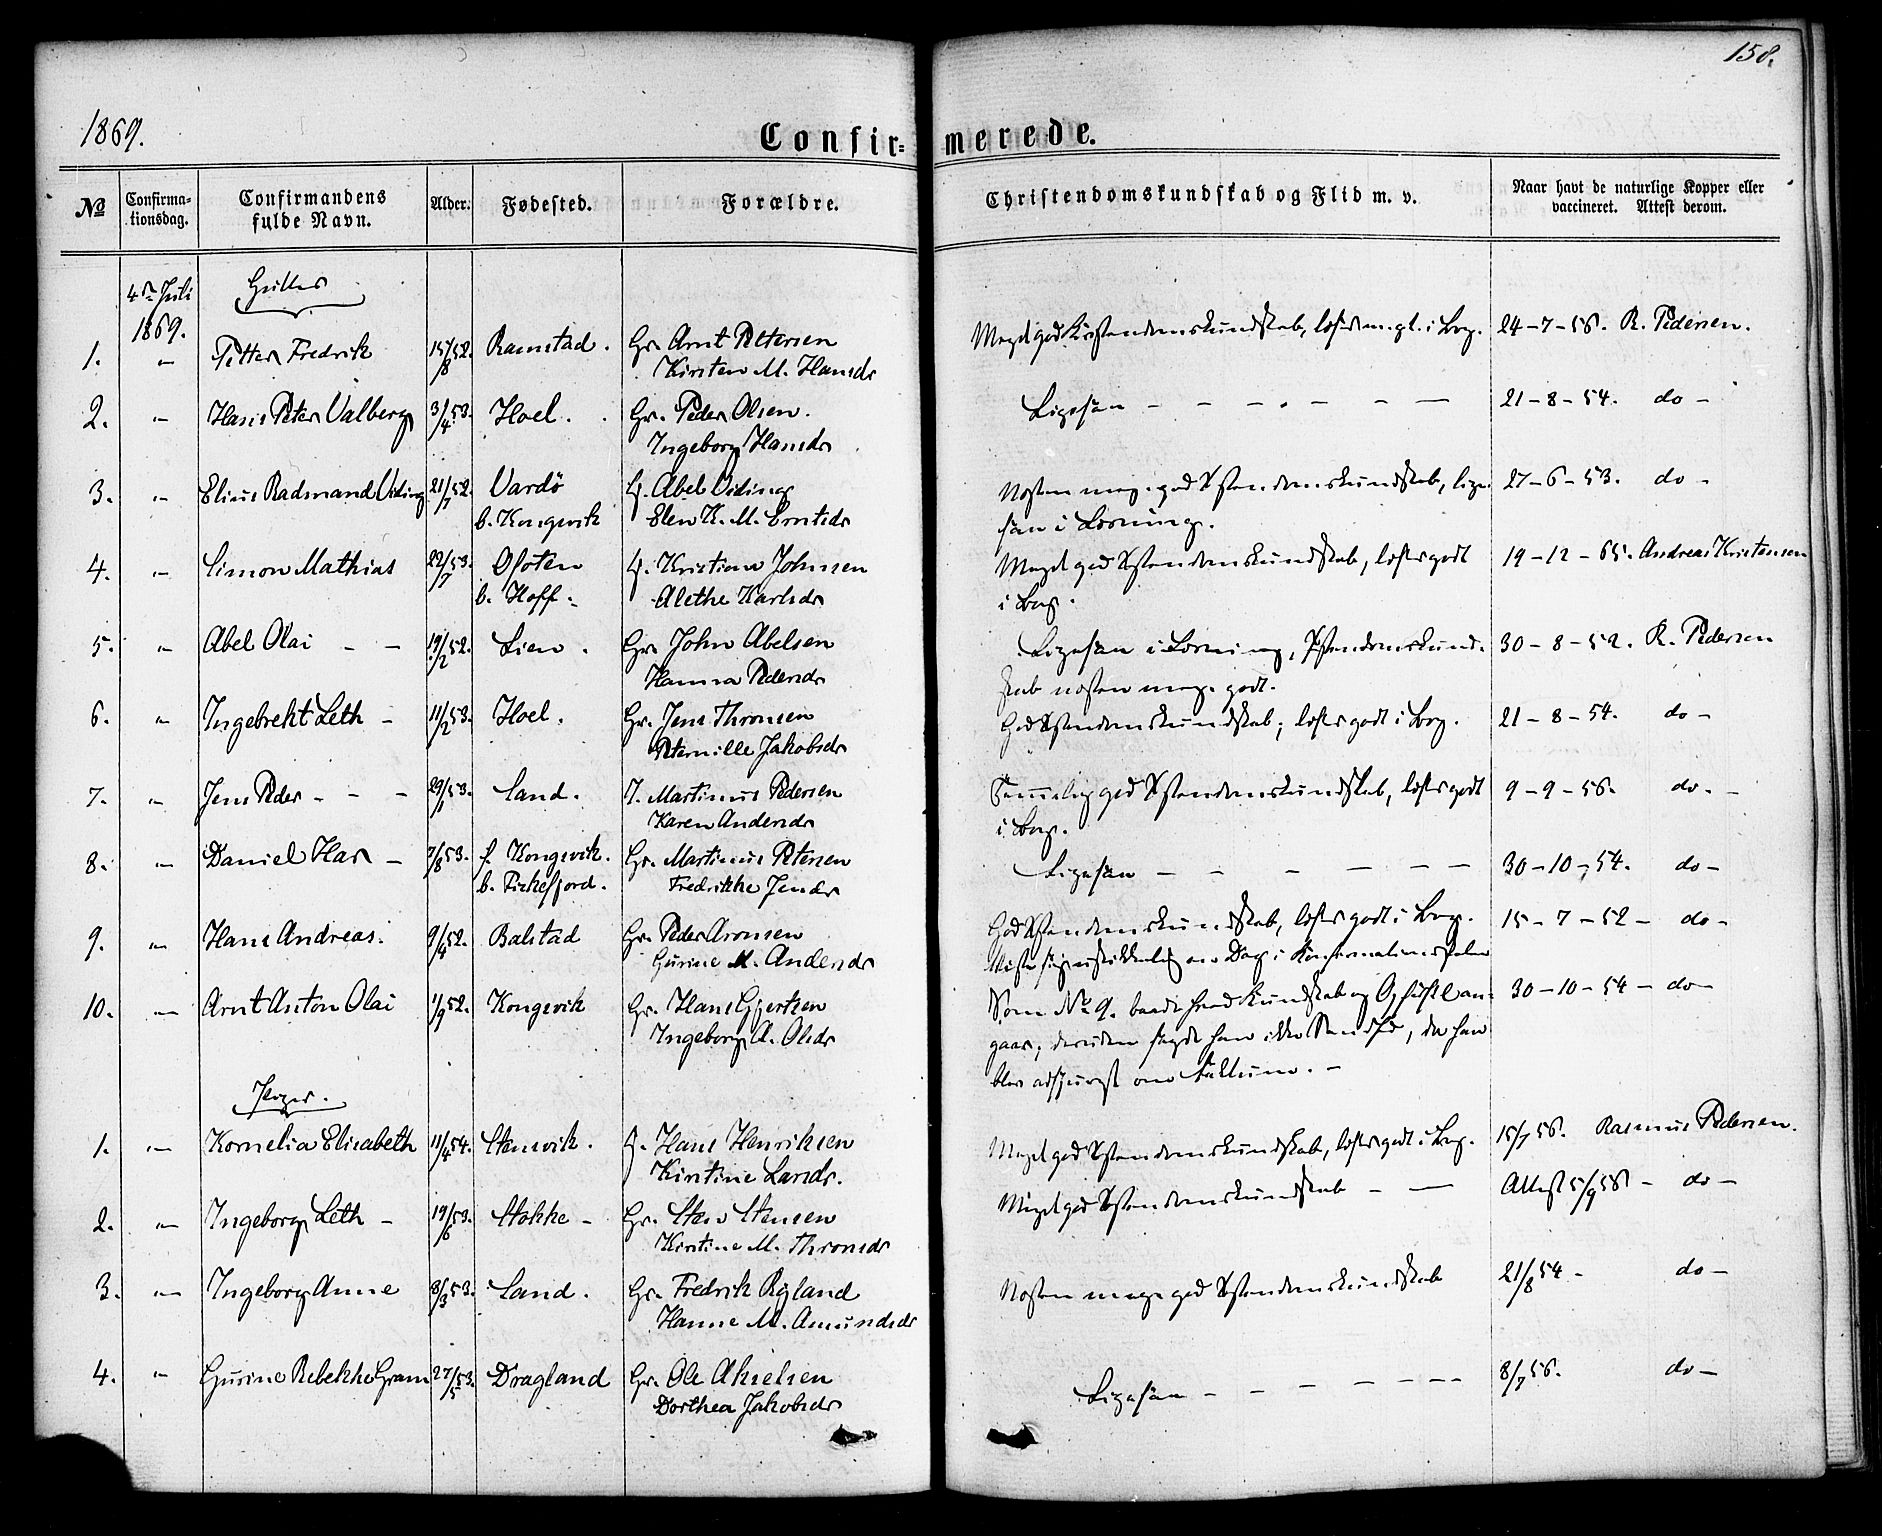 158.
1869.
Confirmerede.
№ Confirmationsdag. Confirmandens fulde Navn. Alder. Fødested. Forældre. Christendomskundskab og Flid m. v. Naar havt de naturlige Kopper eller vaccineret. Attest derom.
4de Juli 1869.
Gutter
1. " Petter Fredrik 15/8 52. Ramstad. Gr. Arnt Pettersen Meget god Kristendomskundskab, læser m. gt. i Bog. 24-7-56. R. Pedersen.
Kirsten M. Hansdr
2. " Hans Peter Valberg 3/4 53. Hoel. Gr. Peder Olsen. Ligesaa – – – – – – 21-8-54. do –
Ingeborg Hansdr
3. " Elius Radmand Viding 21/7 52. Vardö G. Abel Viding Næsten meg. god Xstendomskundskab, lige- 27-6-53. do –
b. Kongsvik Elen K. M. Erntsdr saa i Læsning.
4. " Simon Mathias 22/7 53. Ofoten G. Kristian Johnsen Meget god Xstendomskundskab, læser godt 19-12-65. Andreas Kristensen
b. Hoff. Alethe Karlsdr i Bog.
5. " Abel Olai – – 19/2 52. Lien. Gr. John Abelsen Ligesaa i Læsning, Xstendomskund- 30-8-52. R. Pedersen
Hanna Pedersdr skab næsten meg. godt.
6. " Ingebrekt Leth – 11/2 53. Hoel. Gr. Jens Thronsen God Xstendomskundskab; læser godt i Bog. 21-8-54. do –
Pernille Jakobsdr
7. " Jens Peder – – – 29/1 53. Sand. J. Martinus Pedersen Temmelig god Xstendomskundskab, læser godt 9-9-56. do. –
Karen Andersdr i Bog.
8. " Daniel Har – 7/8 53. f. Kongsvik. Gr. Martinus Petersen Ligesaa – – – – – – 30-10-54. do –
b. Fiskefjord. Fredrikke Jensdr
9. " Hans Andreas. 9/4 52. Balstad Gr. Peder Aronsen God Xstendomskundskab, læser godt i Bog. 15-7-52 – do –
Gurine M. Andersdr Viste sig uskikkelig en Dag i Konfirmationsskolen
10. " Arnt Anton Olai 1/9 52. Kongsvik Gr. Hans Gjertsen Som No. 9. baade hvad Kundskab og Opførsel an- 30-10-54 – do –
Ingeborg A. Olsdr gaar; desuden sagde han ikke Sandhed, da han
blev adspurgt om
Piger.
1. " Kornelia Elisabeth 11/4 54. Stensvik. G. Hans Henriksen Meget god Xstendomskundskab, læser godt i Bog. 15/7 56. Rasmus Pedersen.
Kirstine Larsdr.
2. " Ingeborg Leth – 19/6 53. Stokke – Gr. Sten Stensen Meget god Xstendomskundskab – – Attest 5/9 56 – do –
Kirstine M. Thronsdr
3. " Ingeborg Anne 8/3 53. Sand. Gr. Fredrik Rgland Næsten meget god Xstendomskundskab 21/8 54 – do –
Hanne M. Amundsdr
4. " Gurine Rebekke Gram 27/5 53. Dragland Gr. Ole Akselsen Ligesaa – – – – – – – 8/7 56. do –
Dorthea Jakobsdr